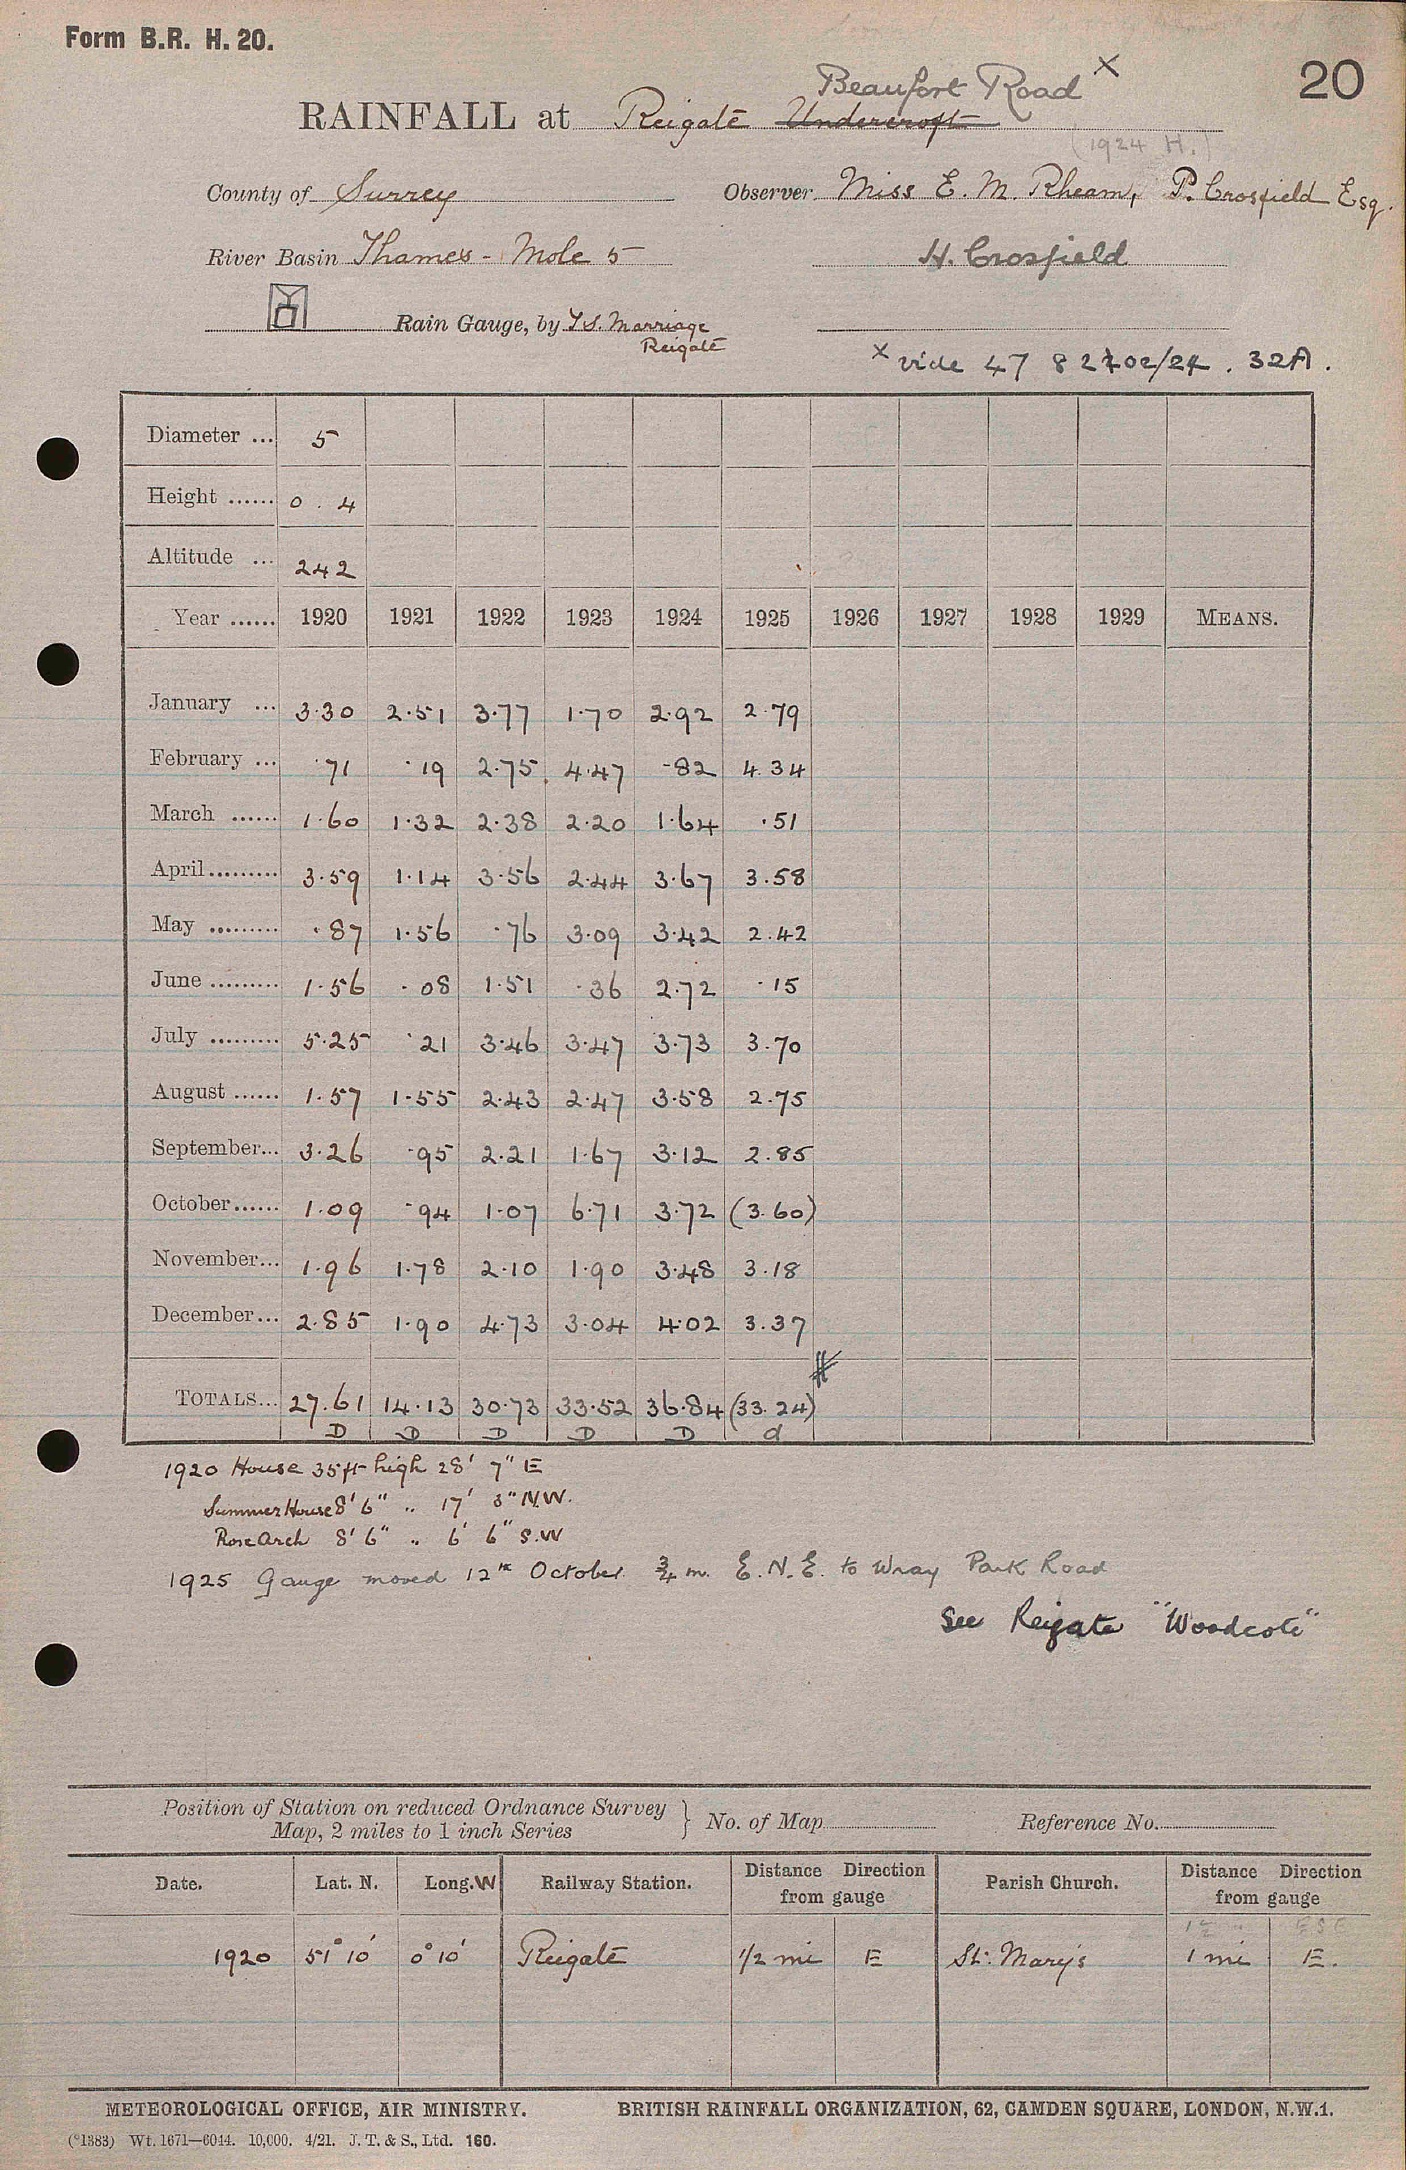 Form B.R. H. 20.
20
Beaufort Road ×
RAINFALL at Reigate Undercroft
(1924 H.)
County of Surrey Observer Miss E. M. Rheam, P. Crosfield Esq.
River Basin Thames - Mole 5 H. Crosfield
Rain Gauge, by T.S. Marriage
Reigate
× vide 47 8 /24 . 32A.
Diameter ... 5
Height ...... 0 . 4
Altitude ... 242
Year ...... 1920 1921 1922 1923 1924 1925 1926 1927 1928 1929 MEANS.
January ... 3.30 2.51 3.77 1.70 2.92 2.79
February ... .71 .19 2.75 4.47 .82 4.34
March ...... 1.60 1.32 2.38 2.20 1.64 .51
April......... 3.59 1.14 3.56 2.44 3.67 3.58
May ......... .87 1.56 .76 3.09 3.42 2.42
June ......... 1.56 .08 1.51 .36 2.72 .15
July ......... 5.25 .21 3.46 3.47 3.73 3.70
August ...... 1.57 1.55 2.43 2.47 3.58 2.75
September... 3.26 .95 2.21 1.67 3.12 2.85
October...... 1.09 .94 1.07 6.71 3.72 (3.60)
November... 1.96 1.78 2.10 1.90 3.48 3.18
December... 2.85 1.90 4.73 3.04 4.02 3.37
TOTALS... 27.61 14.13 30.73 33.52 36.84 (33.24)
D D D D D d
1920 House 35ft high 28' 7" E
Summer House 8' 6" " 17' 3" N.W.
Rose Arch 8' 6" " 6' 6" S.W
1925 Gauge moved 12th October ¾ m. E.N.E. to Wray Park Road
See Reigate "Woodcote"
Position of Station on reduced Ordnance Survey } No. of Map Reference No.
Map, 2 miles to 1 inch Series
Date. Lat. N. Long. W Railway Station. Distance Direction from gauge Parish Church. Distance Direction from gauge
ESE
1920 51° 10' 0° 10' Reigate 1/2 mi E St: Mary's 1 mi E.
METEOROLOGICAL OFFICE, AIR MINISTRY. BRITISH RAINFALL ORGANIZATION, 62, CAMDEN SQUARE, LONDON, N.W.1.
(*1383) Wt. 1671—6044. 10,000. 4/21. J. T. & S., Ltd. 160.